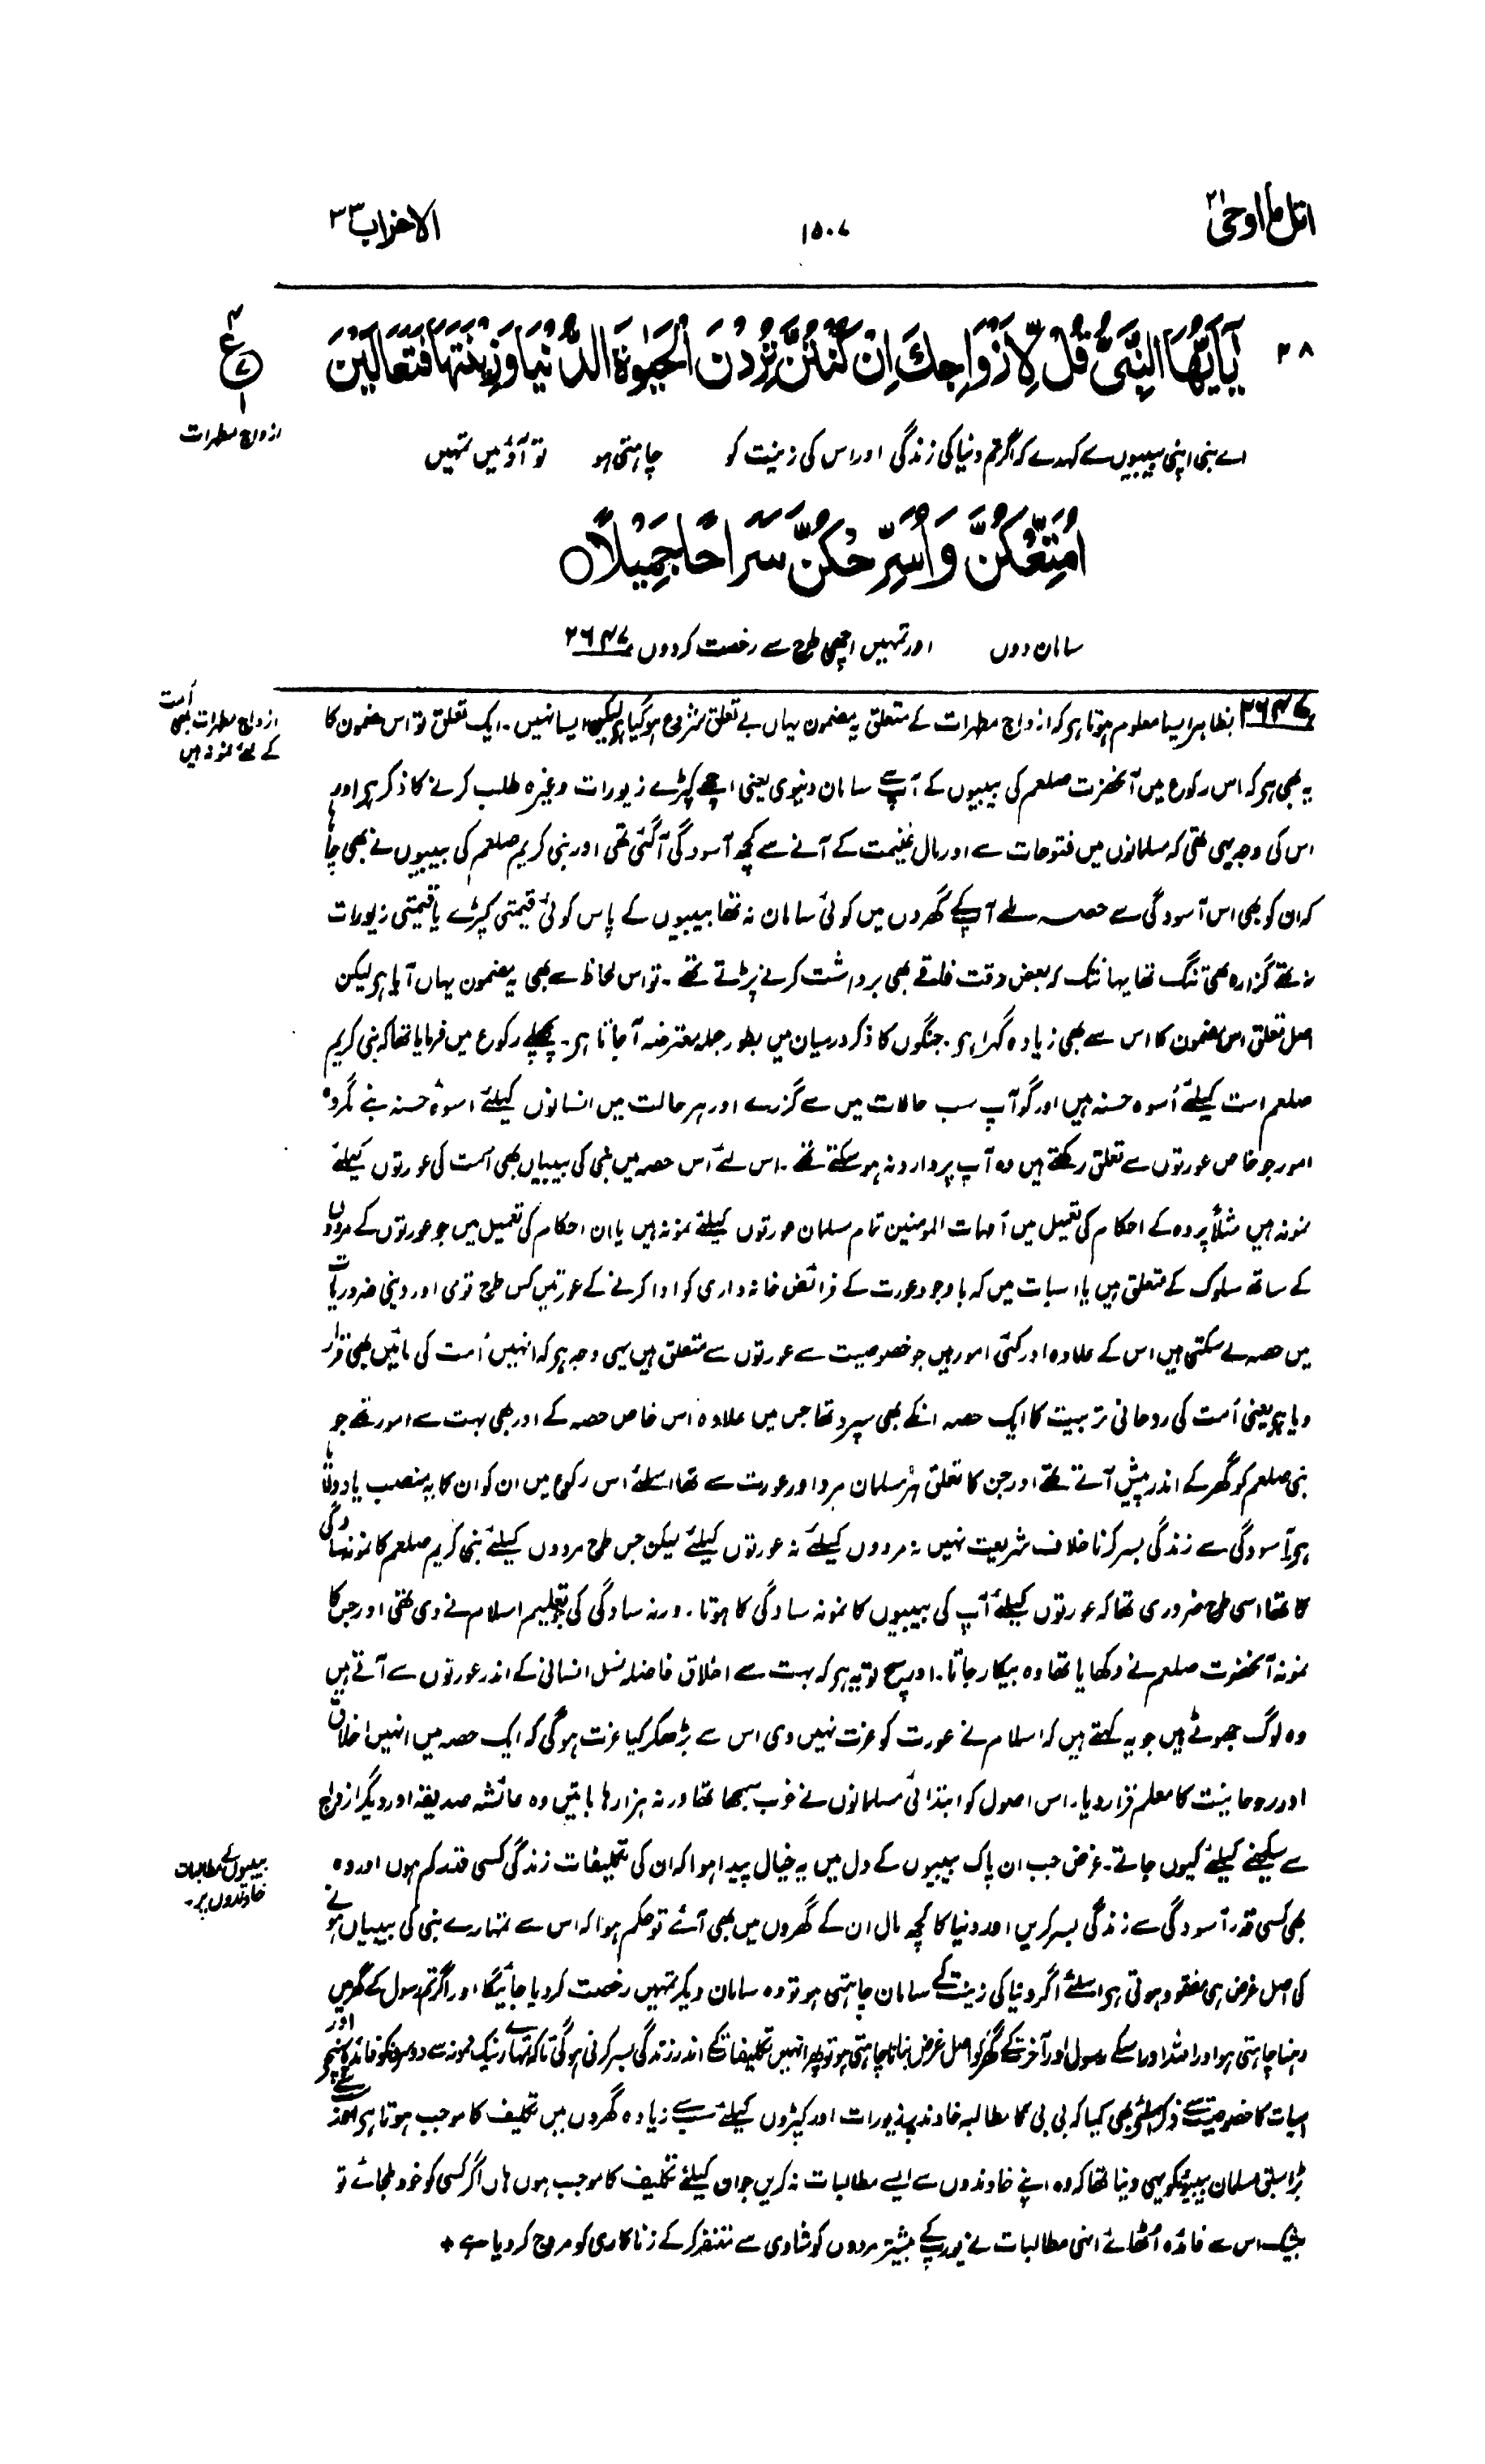 اتل ما اوحی ۲۱
۱۵۰۷
الاحزاب ۳۳
۲۸
يٰۤاَيُّهَا النَّبِىُّ قُلْ لِّاَزْوَاجِكَ اِنْ كُنْتُنَّ تُرِدْنَ الْحَيٰوةَ الدُّنْيَا وَزِيْنَتَهَا فَتَعَالَيْنَ
ع
ازواج مطہرات
اے نبی اپنی بیبیوں سے کہدے کہ اگر تم دنیا کی زندگی اور اس کی زینت کو چاہتی ہو تو آؤ میں تمہیں
اُمَتِّعْكُنَّ وَاُسَرِّحْكُنَّ سَرَاحًا جَمِيْلًا ○
سامان دوں اور تمہیں اچھی طرح سے رخصت کردوں ۲۶۴۷
ازواج مطہرات بھی اُمت
کے لئے نمونہ ہیں
۲۶۴۷ بظاہر ایسا معلوم ہوتا ہے کہ ازواج مطہرات کے متعلق یہ مضمون یہاں بے تعلق شروع ہوگیا ہے لیکن ایسا نہیں۔ ایک تعلق تو اس مضمون کا
یہ بھی ہے کہ اس رکوع میں آنحضرت صلعم کی بیبیوں کے آپ سے سامان دنیوی یعنی اچھے کپڑے زیورات وغیرہ طلب کرنے کا ذکر ہے اور
اس کی وجہ یہی تھی کہ مسلمانوں میں فتوحات سے اور مال غنیمت کے آنے سے کچھ آسودگی آگئی تھی اور نبی کریم صلعم کی بیبیوں نے بھی چاہا
کہ ان کو بھی اس آسودگی سے حصہ ملے آپ کے گھروں میں کوئی سامان نہ تھا بیبیوں کے پاس کوئی قیمتی کپڑے یا قیمتی زیورات
نہ تھے گزارہ بھی تنگ تھا یہانتک کہ بعض وقت فاقے بھی برداشت کرنے پڑتے تھے۔ تو اس لحاظ سے بھی یہ مضمون یہاں آیا ہے لیکن
اصل تعلق اس مضمون کا اس سے بھی زیادہ گہرا ہے۔ جنگوں کا ذکر درمیان میں بطور جملہ معترضہ آجاتا ہے۔ پچھلے رکوع میں فرمایا تھا کہ نبی کریم
صلعم امت کیلئے اُسوہ حسنہ ہیں اور گو آپ سب حالات میں سے گزرے اور ہر حالت میں انسانوں کیلئے اسوۂ حسنہ بنے مگر وہ
امور جو خاص عورتوں سے تعلق رکھتے ہیں وہ آپ پر وارد نہ ہوسکتے تھے۔ اس لئے اس حصہ میں نبی کی بیبیاں بھی اُمت کی عورتوں کیلئے
نمونہ ہیں مثلاً پردہ کے احکام کی تعمیل میں اُمہات المومنین تمام مسلمان عورتوں کیلئے نمونہ ہیں یا ان احکام کی تعمیل میں جو عورتوں کے مردوں
کے ساتھ سلوک کے متعلق ہیں یا اس بات میں کہ باوجود عورت کے فرائض خانہ داری کو ادا کرنے کے عورتیں کس طرح قومی اور دینی ضروریات
میں حصہ لے سکتی ہیں اس کے علاوہ اور کئی امور ہیں جو خصوصیت سے عورتوں سے متعلق ہیں یہی وجہ ہے کہ انہیں اُمت کی مائیں بھی قرار
دیا ہے یعنی اُمت کی روحانی تربیت کا ایک حصہ انکے بھی سپرد تھا جس میں علاوہ اس خاص حصہ کے اور بھی بہت سے امور تھے جو
نبی صلعم کو گھر کے اندر پیش آتے تھے اور جن کا تعلق ہر مسلمان مرد اور عورت سے تھا اسلئے اس رکوع میں ان کو ان کا یہ منصب یاد دلایا
ہے۔ آسودگی سے زندگی بسر کرنا خلاف شریعت نہیں نہ مردوں کیلئے نہ عورتوں کیلئے لیکن جس طرح مردوں کیلئے نبی کریم صلعم کا نمونہ سادگی
کا تھا اسی طرح ضروری تھا کہ عورتوں کیلئے آپ کی بیبیوں کا نمونہ سادگی کا ہوتا۔ ورنہ سادگی کی جو تعلیم اسلام نے دی تھی اور جس کا
نمونہ آنحضرت صلعم نے دکھایا تھا وہ بیکار جاتا۔ اور سچ تو یہ ہے کہ بہت سے اخلاق فاضلہ نسل انسانی کے اندر عورتوں سے آتے ہیں
وہ لوگ جھوٹے ہیں جو یہ کہتے ہیں کہ اسلام نے عورت کو عزت نہیں دی اس سے بڑھکر کیا عزت ہوگی کہ ایک حصہ میں انہیں اخلاق
اور روحانیت کا معلم قرار دیا۔ اس اصول کو ابتدائی مسلمانوں نے خوب سمجھا تھا ورنہ ہزارہا باتیں وہ عائشہ صدیقہ اور دیگر ازواج
سے سیکھنے کیلئے کیوں جاتے۔ غرض جب ان پاک بیبیوں کے دل میں یہ خیال پیدا ہوا کہ ان کی تکلیفات زندگی کسی قدر کم ہوں اور وہ
بیبیوں کے مطالبات
خاوندوں پر۔
بھی کسی قدر آسودگی سے زندگی بسر کریں اور دنیا کا کچھ مال ان کے گھروں میں بھی آئے تو حکم ہوا کہ اس سے تمہارے نبی کی بیبیاں ہونے
کی اصل غرض ہی مفقود ہوتی ہے اسلئے اگر دنیا کی زینت کے سامان چاہتی ہو تو وہ سامان دیکر تمہیں رخصت کردیا جائیگا اور اگر تم رسول کے گھر میں
رہنا چاہتی ہو اور اللہ اور اسکے رسول اور آخرت کے گھر کو اصل غرض بنانا چاہتی ہو تو پھر انہیں تکلیفات کے اندر زندگی بسر کرنی ہوگی تاکہ تمہارے نیک نمونہ سے دوسرونکو فائدہ پہنچے اور
اس بات کا خصوصیت سے ذکر اسلئے بھی کیا کہ بی بی کا مطالبہ خاوند پر زیورات اور کپڑوں کیلئے سب سے زیادہ گھروں میں تکلیف کا موجب ہوتا ہے
بڑا سبق مسلمان بیبیونکو یہی دینا تھا کہ وہ اپنے خاوندوں سے ایسے مطالبات نہ کریں جو ان کیلئے تکلیف کا موجب ہوں ہاں اگر کسی کو خود ملجائے تو
بیشک اس سے فائدہ اُٹھائے انہی مطالبات نے یورپ کے بیشتر مردوں کو شادی سے متنفر کرکے زناکاری کو مروج کردیا ہے +